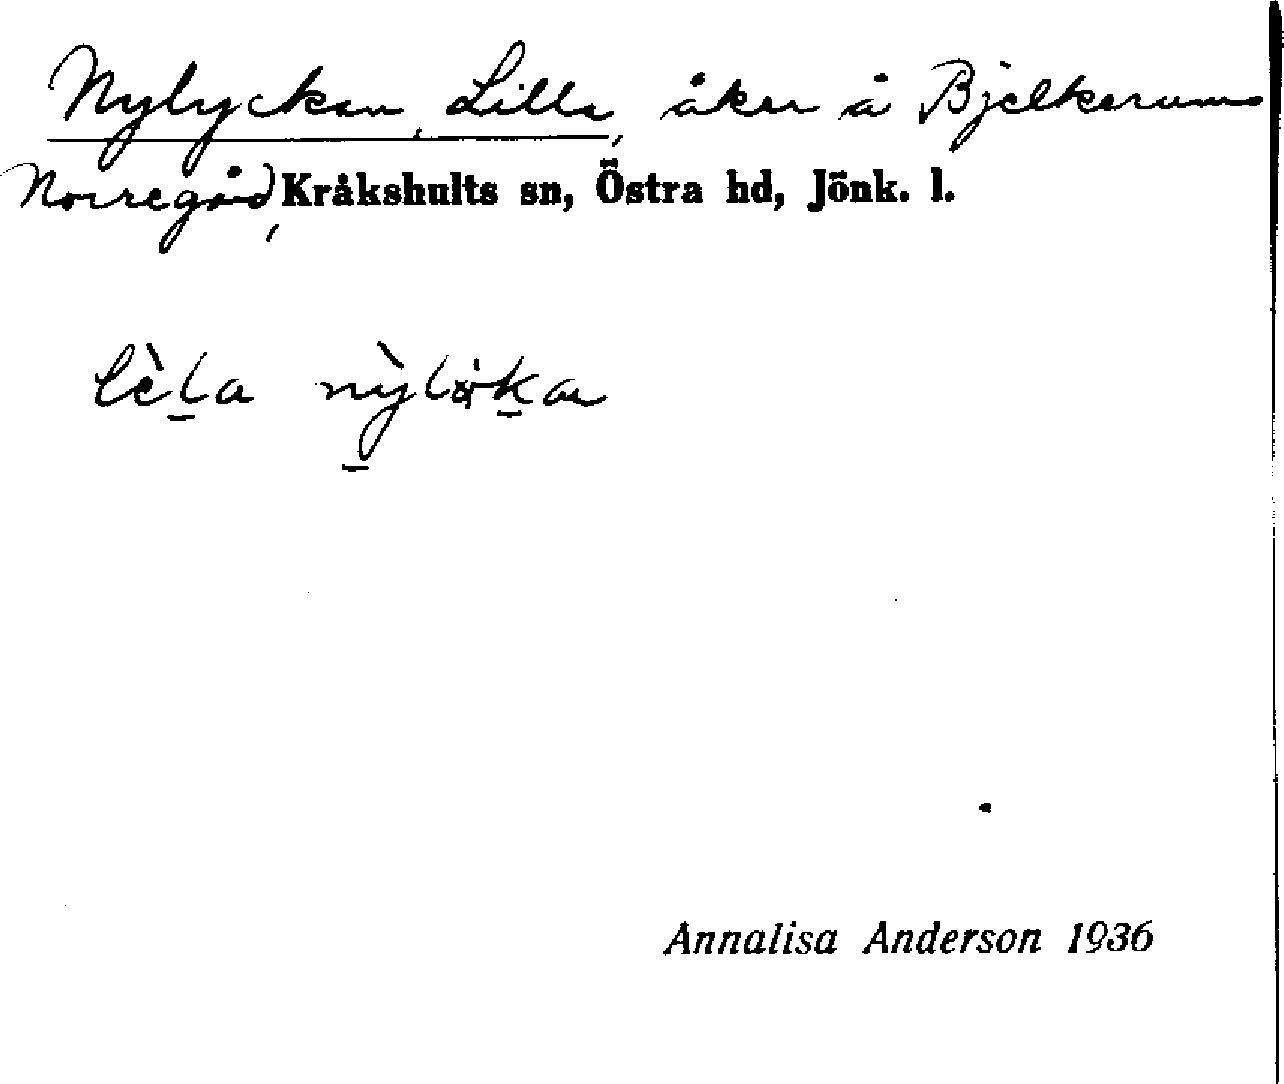 Nylyckan, Lilla, åker å Bjelkerums
Norregård, Kråkshults sn, Östra hd, Jönk. l.
lèla nỳlökan
Annalisa Anderson 1936